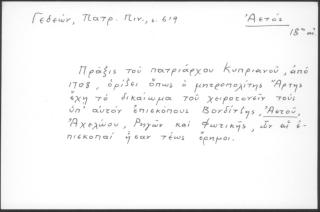 Γεδεών, Πατρ. Πιν., σ. 619
Ἀετός
18ος αἰ.
Πρᾶξις τοῦ πατριάρχου Κυπριανοῦ, ἀπὸ
1708, ὁρίζει ὅπως ὁ μητροπολίτης Ἄρτης
ἔχῃ τὸ δικαίωμα τοῦ χειροτονεῖν τοὺς
ὑπ' αὐτὸν ἐπισκόπους Βονδίτζης, Ἀετοῦ,
Ἀχελώου, Ῥηγῶν καὶ Φωτικῆς, ὧν αἱ ἐ-
πισκοπαὶ ἦσαν τέως ἔρημοι.